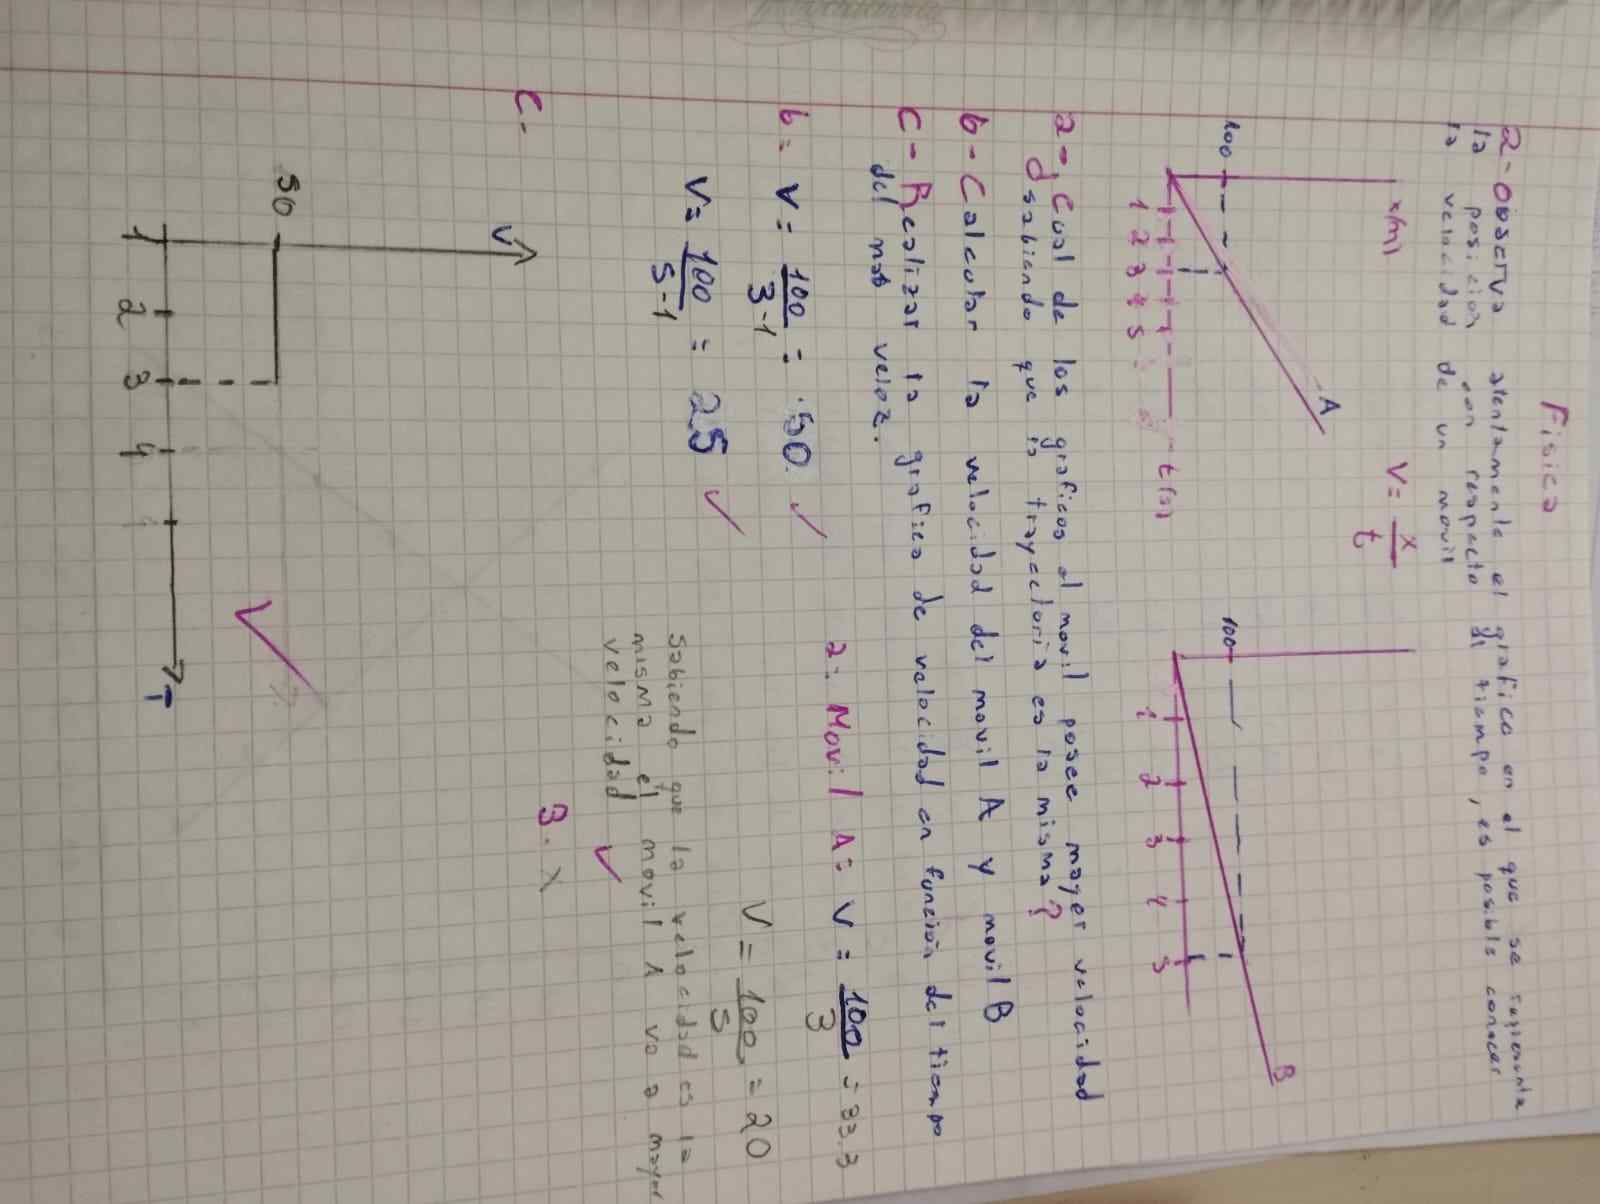 Fisica
2- Observa atentamente el grafico en el que se representa
la posicion con respecto al tiempo, es posible conocer
la velocidad de un movil
x(m)
100
A
1 2 3 4 5
t(s)
V= x/t
100
B
1 2 3 4 5
a- ¿Cual de los graficos el movil posee mayor velocidad
sabiendo que la trayectoria es la misma?
b- Calcular la velocidad del movil A y movil B
C- Realizar la grafica de velocidad en función del tiempo
del más veloz.
b= V= 100/3-1 = 50
V= 100/5-1 = 25
a: Movil A= V= 100/3 = 33.3
V= 100/5 = 20
Sabiendo que la velocidad es la
misma el movil A va a mayor
velocidad
B. X
C-
V
50
1 2 3 4
T